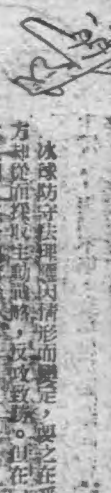 冰球防守法理應因情形而變定，要之在乎
方却從而採取主動戰略，反攻致勝。但在